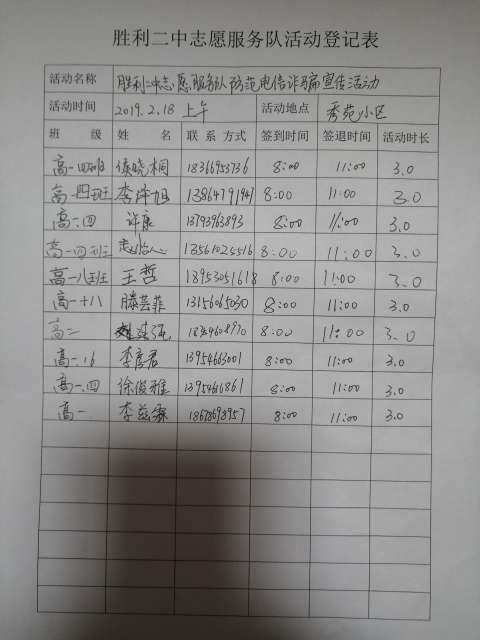 胜利二中志愿服务队活动登记表
活动名称 胜利二中志愿服务队防范电信诈骗宣传活动
活动时间 2019.2.18 上午 活动地点 秀苑小区
班 级 姓 名 联系方式 签到时间 签退时间 活动时长
高一四班 侯晓桐 18366953736 8:00 11:00 3.0
高一四班 李洋旭 13864791947 8:00 11:00 3.0
高一.四 许康 13793963893 8:00 11:00 3.0
高一四班 13561025516 8:00 11:00 3.0
高一八班 王哲 18953051618 8:00 11:00 3.0
高一十八 滕芸菲 13156065030 8:00 11:00 3.0
高二 8:00 11:00 3.0
高一.16 李彦君 13954663001 8:00 11:00 3.0
高一.四 徐俊雅 13954616861 8:00 11:00 3.0
高一. 李兹霖 18678698957 8:00 11:00 3.0